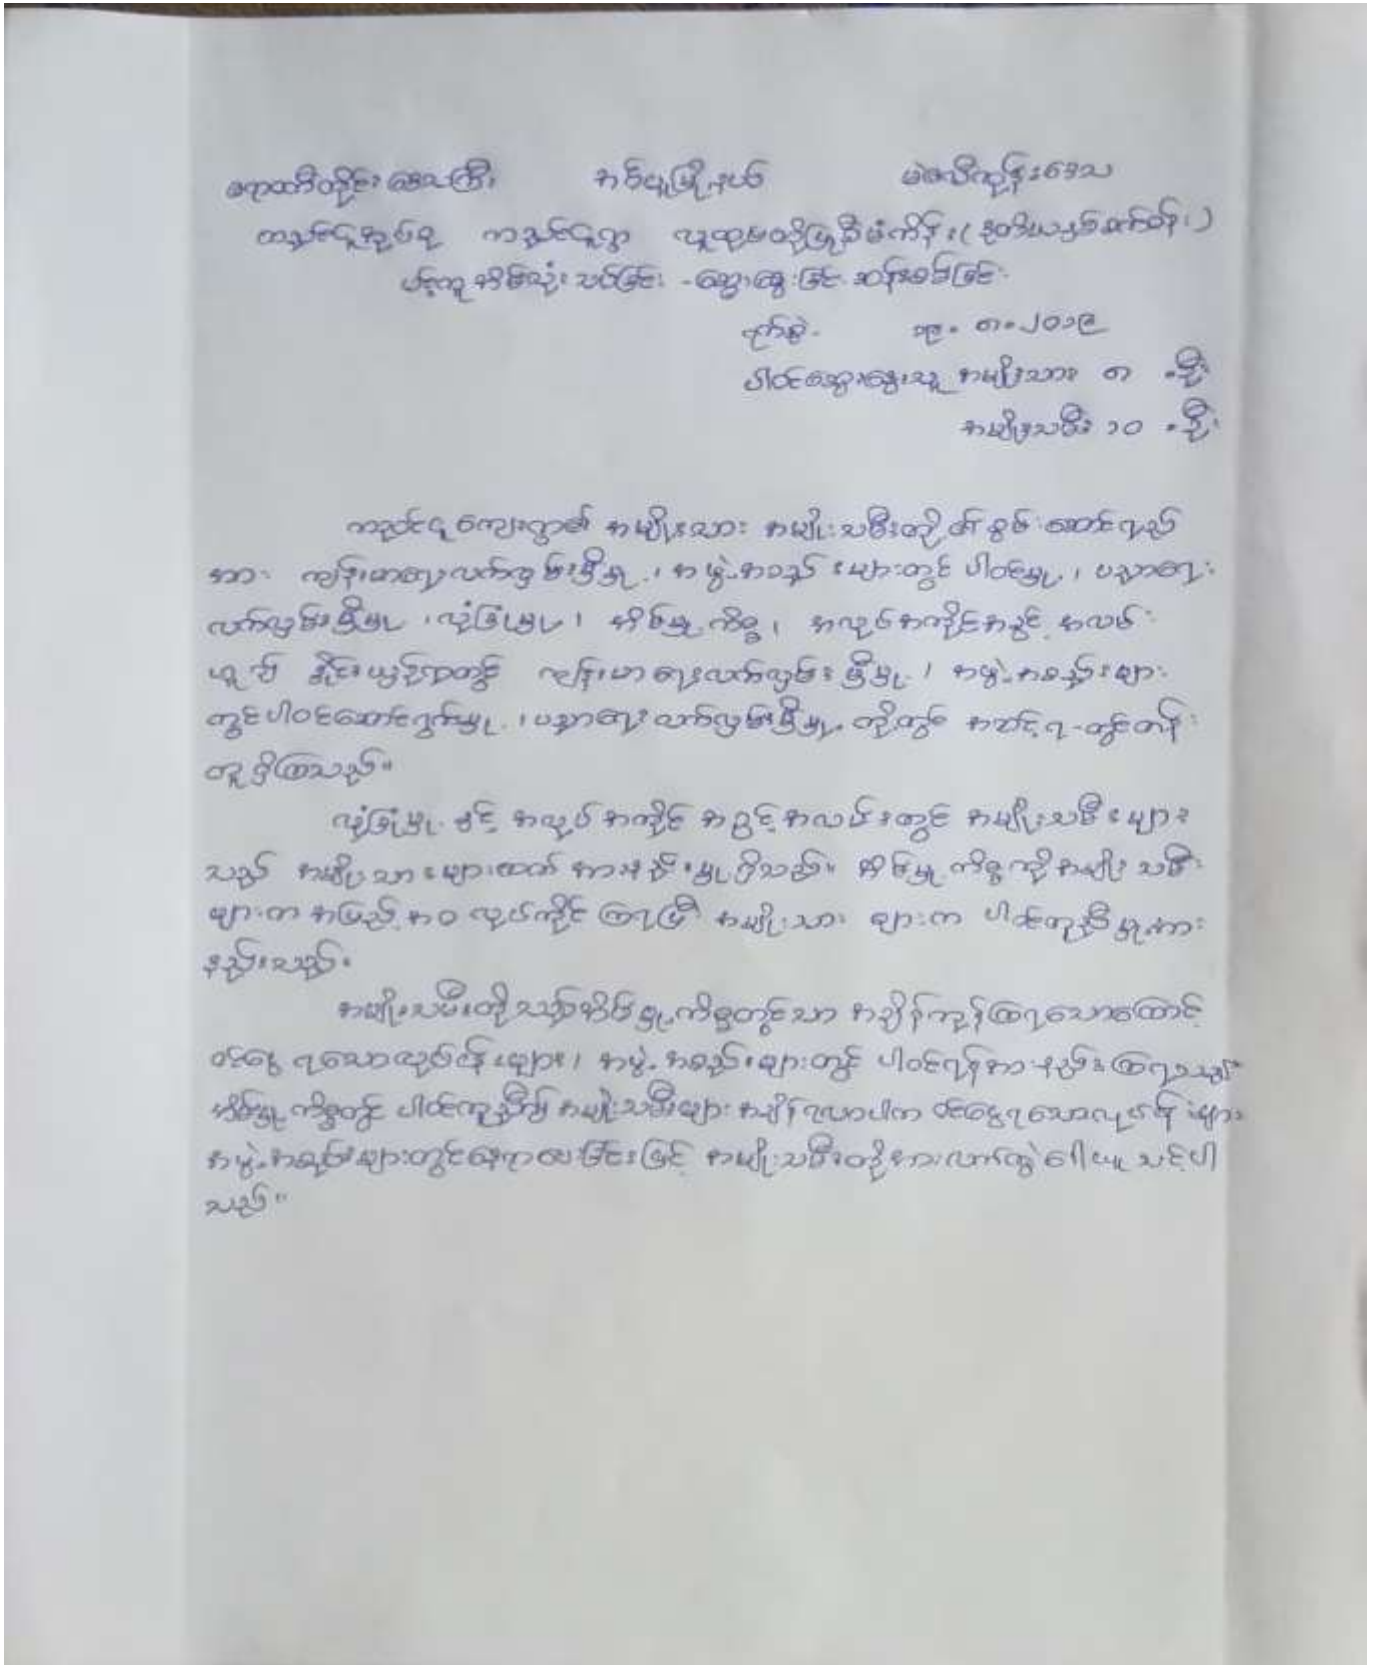 ဧရာဝတီတိုင်းဒေသကြီး အင်္ဂပူမြို့နယ် မဲဇလီကုန်းဒေသ
ကညင်ငူအုပ်စု ကညင်ငူရွာ လူထုဗဟိုပြုစီမံကိန်း (ဒုတိယနှစ်ဆက်တန်း)
ပင့်ကူအိမ်သုံးသပ်ခြင်း - ဆွေးနွေးခြင်း ဆန်းစစ်ခြင်း
ရက်စွဲ - ၁၉ - ၈ - ၂၀၁၉
ပါဝင်ဆွေးနွေးသူ အမျိုးသား ၈ - ဦး
အမျိုးသမီး ၁၀ - ဦး
ကညင်ငူကျေးရွာ၏ အမျိုးသား အမျိုးသမီးတို့၏ စွမ်းဆောင်ရည်
အား ကျန်းမာရေးလက်လှမ်းမှီမှု ၊ အဖွဲ့အစည်းများတွင် ပါဝင်မှု ၊ ပညာရေး
လက်လှမ်းမှီမှု ၊ လုံခြုံမှု ၊ အိမ်မှုကိစ္စ ၊ အလုပ်အကိုင်အခွင့်အလမ်း
ဟူ၍ နှိုင်းယှဉ်ရာတွင် ကျန်းမာရေးလက်လှမ်းမှီမှု ၊ အဖွဲ့အစည်းများ
တွင်ပါဝင်ဆောင်ရွက်မှု ၊ ပညာရေးလက်လှမ်းမှီမှု တို့တွင် အဆင့် ၇ - တွင်တန်း
တူရှိကြသည်။
လုံခြုံမှု နှင့် အလုပ်အကိုင် အခွင့်အလမ်းတွင် အမျိုးသမီးများ
သည် အမျိုးသားများထက် အားနည်းမှုရှိသည်။ အိမ်မှုကိစ္စကိုအမျိုးသမီး
များက အပြည့်အဝ လုပ်ကိုင်ကြရပြီး အမျိုးသား များက ပါဝင်ကူညီမှုအား
နည်းသည်။
အမျိုးသမီးတို့သည်အိမ်မှုကိစ္စတွင်သာ အချိန်ကုန်ကြရသောကြောင့်
ဝင်ငွေရသောလုပ်ငန်းများ၊ အဖွဲ့အစည်းများတွင် ပါဝင်ရန်အားနည်းကြရသည်။
အိမ်မှုကိစ္စတွင် ပါဝင်ကူညီ၍ အမျိုးသမီးများ အချိန်ရလာပါက ဝင်ငွေရသောလုပ်ငန်းများ
အဖွဲ့အစည်းများတွင်နေရာပေးခြင်းဖြင့် အမျိုးသမီးတို့အားလက်တွဲခေါ်ယူသင့်ပါ
သည်။